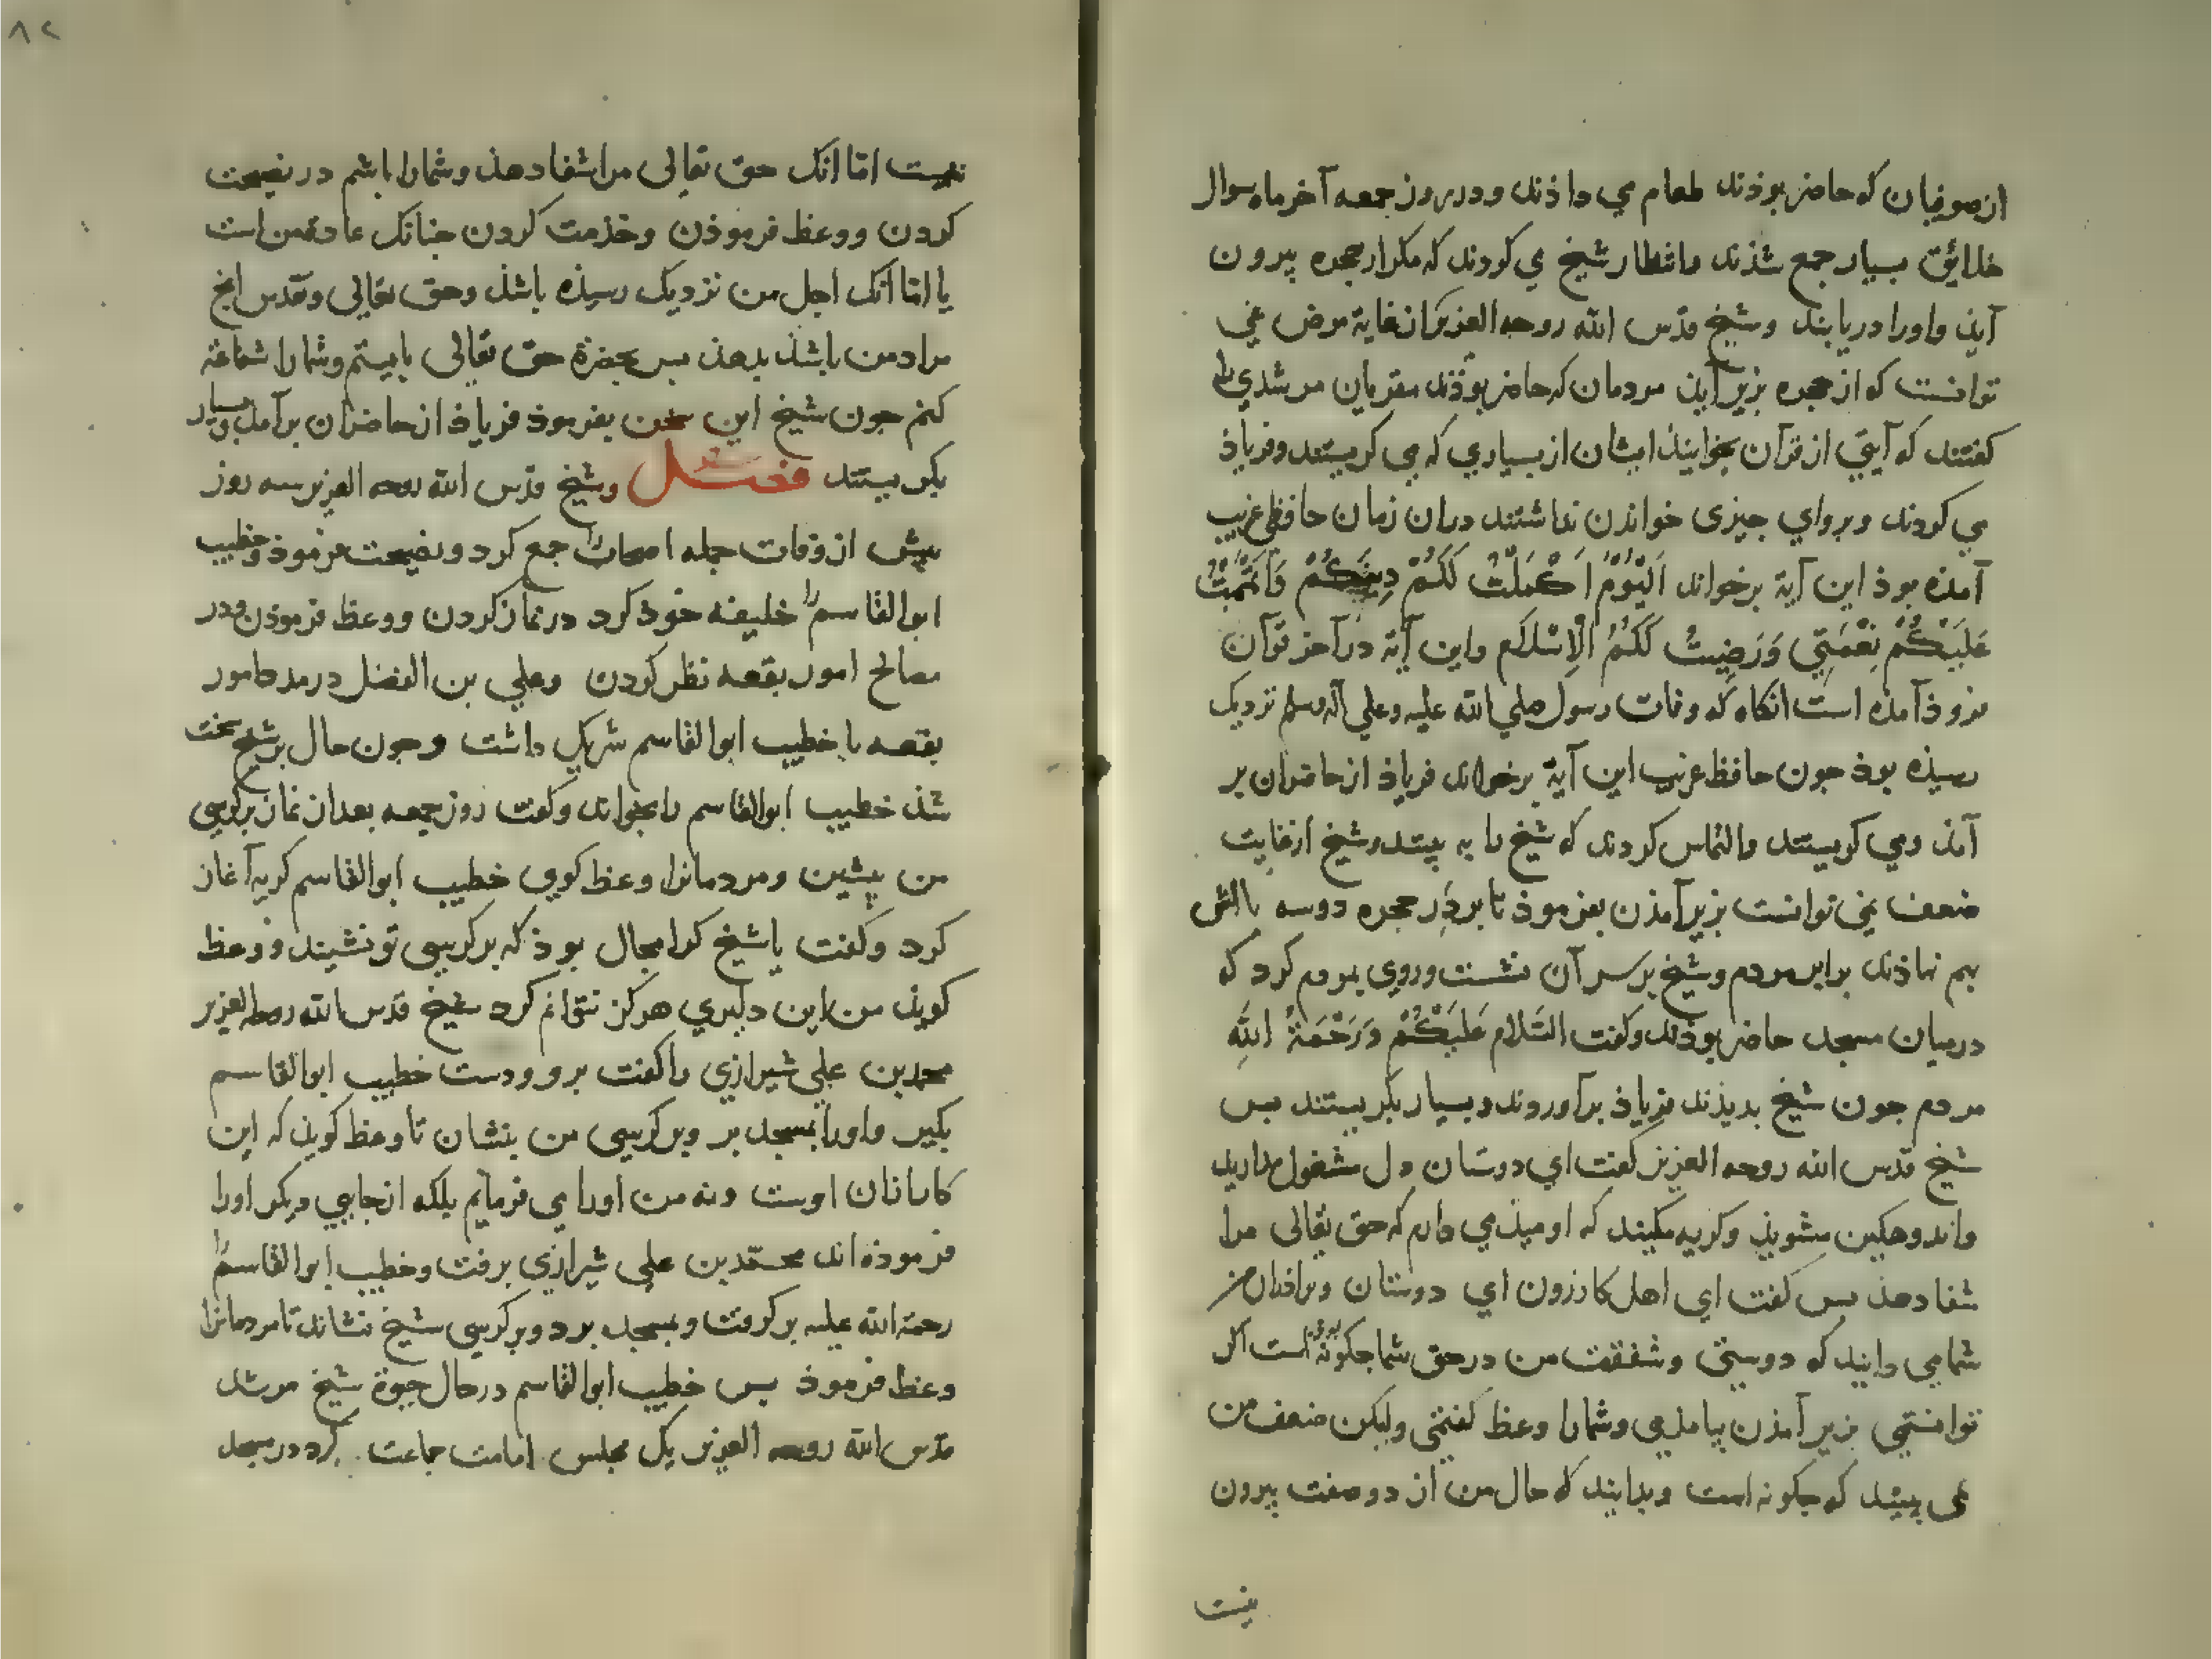 از صوفیان که حاضر بوذند طعام می داذند ودر روز جمعه آخر ماه سوال
خلائق بسیار جمع شذند وانتظار شیخ می کردند که مکر از حجره بیرون
آیذ واورا دریابند وشیخ قدس الله روحه العزیز از غایة مرض نمی
توانست که از حجره بزیر آیذ مردمان که حاضر بوذند مقریان مرشدی را
کفتند که آیتی از قرآن بخوانیذ ایشان از بسیاری که می کریستند وفریاذ
می کردند وبروای جیزی خواندن نداشتند دران زمان حافظی غریب
آمذه بوذ این آیة برخواند اَلْیَوْمَ اَکْمَلْتُ لَکُمْ دِینَکُمْ وَاَتْمَمْتُ
عَلَیْکُمْ نِعْمَتِی وَرَضِیتُ لَکُمُ الْاِسْلَامَ واین آیة در آخر قرآن
فروذ آمذه است انکاه که وفات رسول صلی الله علیه وعلی آله وسلم نزدیک
رسیذه بوذ جون حافظ غریب این آیة برخواند فریاذ از حاضران بر
آمذ ومی کریستند والتماس کردند که شیخ را به بینند وشیخ از غایت
ضعف نمی توانست بزیر آمذن بفرموذ تا بر در حجره دوسه بالش
بهم نهاذند برابر مردم وشیخ بر سر آن نشست وروی بمردم کرد که
درمیان مسجد حاضر بوذند وکفت السَّلام عَلَیْکُمْ وَرَحْمَةُ اللهِ
مردم جون شیخ بدیذند فریاذ برآوردند وبسیار بکریستند بس
شیخ قدس الله روحه العزیز کفت ای دوستان دل مشغول مداریذ
واندوهکین مشویذ وکریه مکنید که اومیذ می دارم که حق تعالی مرا
شفا دهذ بس کفت ای اهل کازرون ای دوستان وبرادران من
شما می دانید که دوستی وشفقت من در حق شما جکونه بوذه است اکر
توانستمی بزیر آمذن بیامذمی وشمارا وعظ کفتمی ولیکن ضعف من
می بینید که جکونه است وبدانید که حال من از دو صفت بیرون
نیست
نیست اما انک حق تعالی مرا شفا دهذ وشمارا باشم در نصیحت
کردن ووعظ فرموذن وخذمت کردن جنانک عادة من است
یا اما انک اجل من نزدیک رسیذه باشذ وحق تعالی وتقدس انج
مراد من باشذ بدهذ بس بحضرة حق تعالی بایستم وشمارا شفاعة
کنم جون شیخ این سخن بفرموذ فریاذ از حاضران برآمد وبسیار
بکریستند فصل وشیخ قدس الله روحه العزیز سه روز
بیش از وفات جمله اصحاب را جمع کرد ونصیحت فرموذ وخطیب
ابوالقاسم را خلیفه خوذ کرد در نماز کردن ووعظ فرموذن ودر
مصالح امور بقعه نظر کردن وعلی بن الفضل در مدد امور
بقعه با خطیب ابوالقاسم شریک داشت وجون حال بر شیخ سخت
شذ خطیب ابوالقاسم را بخواند وکفت روز جمعه بعد از نماز بر کرسی
من بنشین ومردمانرا وعظ کوی خطیب ابوالقاسم کریه آغاز
کرد وکفت یا شیخ کرا مجال بوذ که بر کرسی تو نشیند ووعظ
کویذ من این دلیری هرکز نتوانم کرد شیخ قدس الله روحه العزیز
محمد بن علی شیرازی را کفت برو ودست خطیب ابوالقاسم
بکیر واورا بمسجد بر وبر کرسی من بنشان تا وعظ کویذ که این
کار ازان اوست ونه من اورا می فرمایم بلکه از جایی دیکر اورا
فرموذه اند محمد بن علی شیرازی برفت وخطیب ابوالقاسم را
رحمة الله علیه برکرفت وبمسجد برد وبر کرسی شیخ نشاند تا مردمانرا
وعظ فرموذ بس خطیب ابوالقاسم در حال حیوة شیخ مرشد
قدس الله روحه العزیز یک مجلس امامت جماعت کرد در مسجد
۸۲